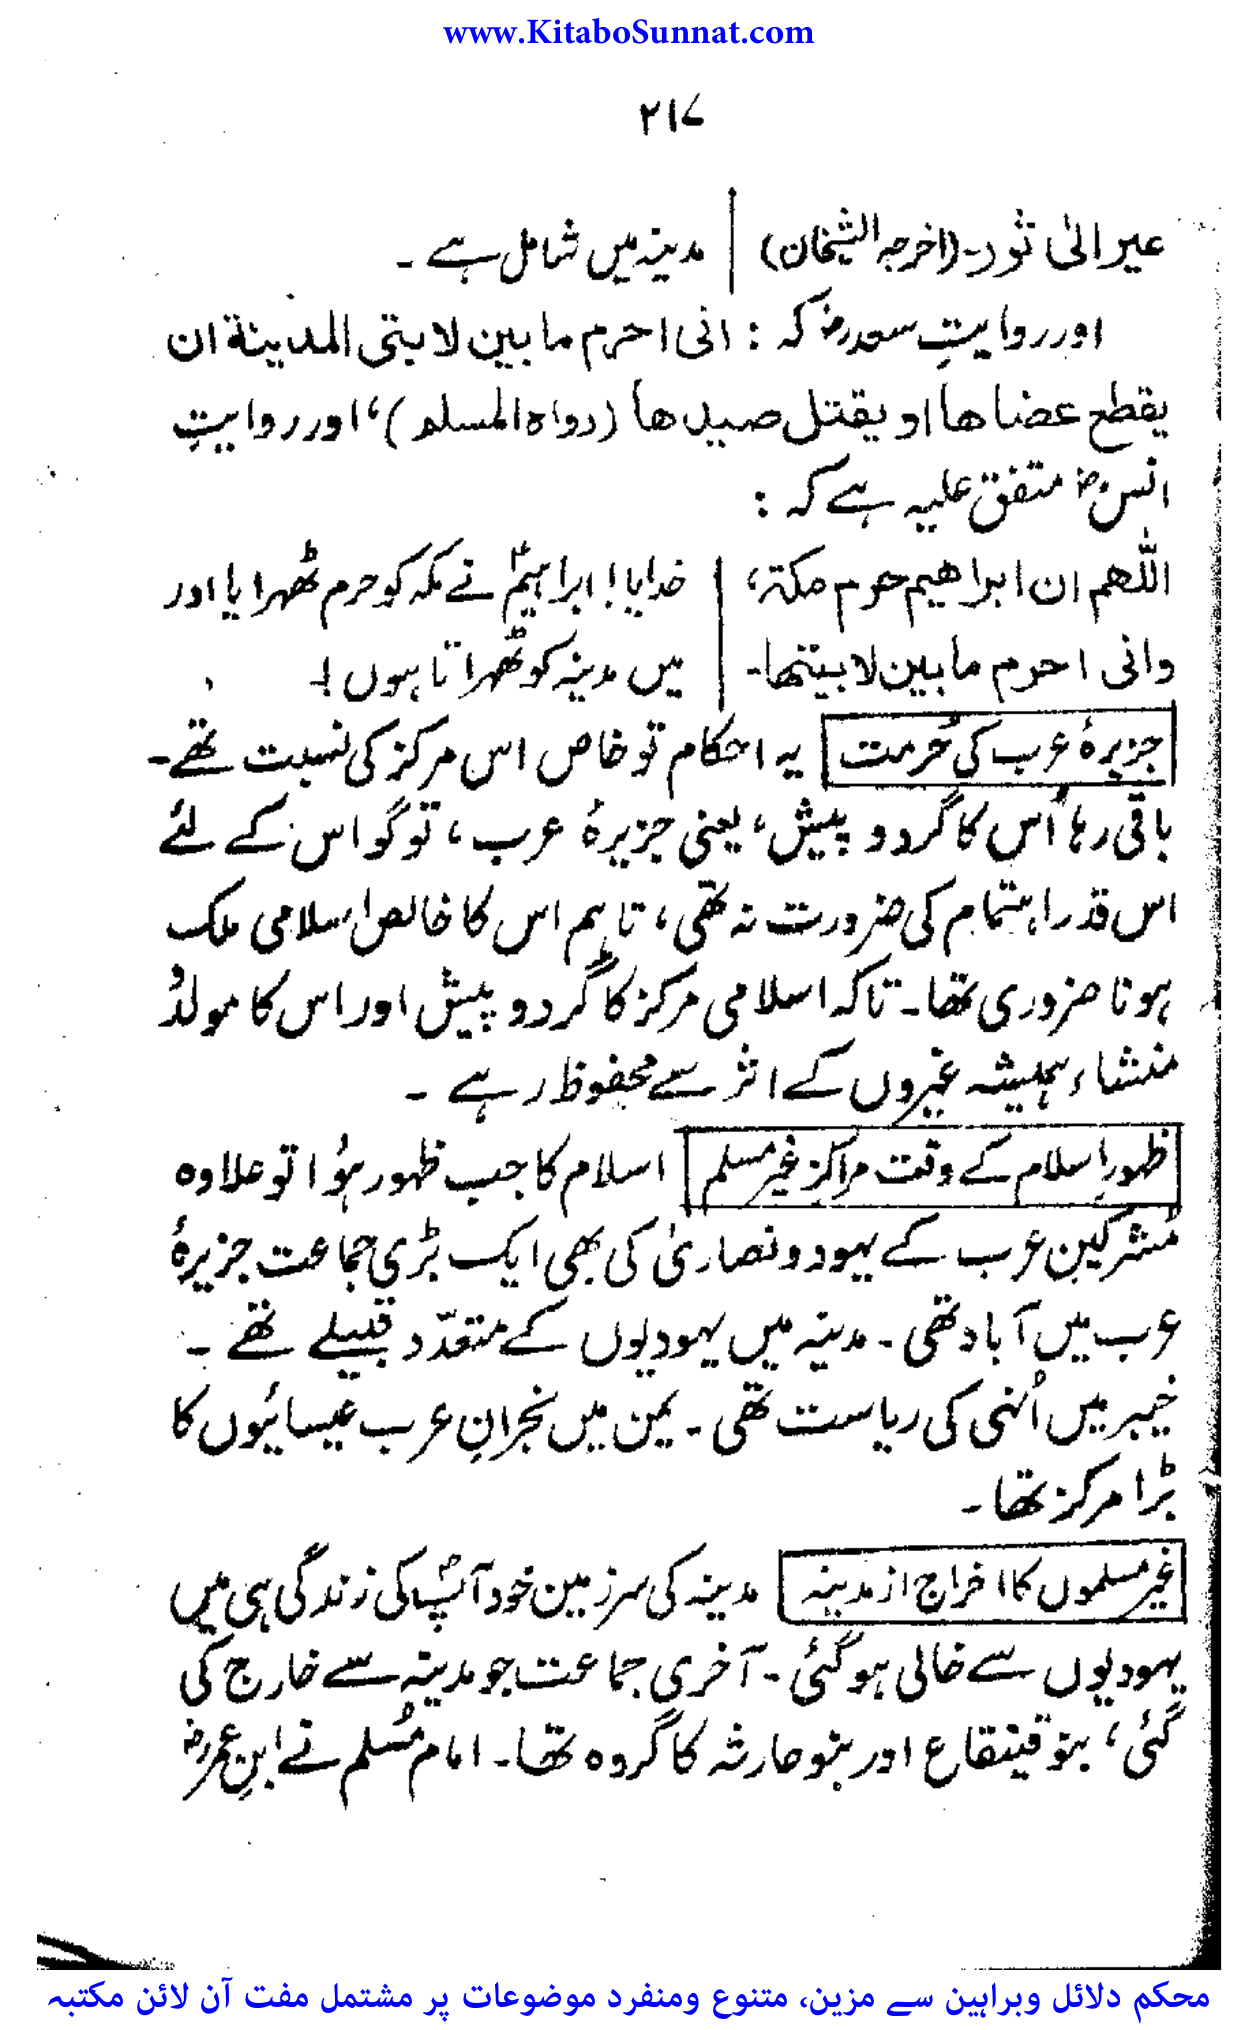 www.KitaboSunnat.com
۲۱۷
عیر الیٰ ثور۔ (اخرجہ الشیخان) | مدینہ میں شامل ہے ۔
اور روایتِ سعدرض کہ : انی احرم ما بین لابتی المدینة ان
یقطع عضاھا او یقتل صیدھا (رواہ المسلم)، اور روایتِ
انسرض متفق علیہ ہے کہ :
اللّٰھم ان ابراھیم حرم مکة، | خدایا! ابراہیمؑ نے مکہ کو حرم ٹھہرایا اور
وانی احرم ما بین لابیتھا۔ | میں مدینہ کو ٹھہراتا ہوں !۔
جزیرۂ عرب کی حُرمت یہ احکام تو خاص اس مرکز کی نسبت تھے۔
باقی رہا اُس کا گرد و پیش، یعنی جزیرۂ عرب، تو گو اس کے لئے
اس قدر اہتمام کی ضرورت نہ تھی، تاہم اس کا خالص اسلامی ملک
ہونا ضروری تھا۔ تاکہ اسلامی مرکز کا گرد و پیش اور اس کا مولد و
منشاء ہمیشہ غیروں کے اثر سے محفوظ رہے ۔
ظہورِ اسلام کے وقت مراکز غیر مسلم اسلام کا جب ظہور ہُوا تو علاوہ
مُشرکینِ عرب کے یہود و نصاریٰ کی بھی ایک بڑی جماعت جزیرۂ
عرب میں آباد تھی ۔ مدینہ میں یہودیوں کے متعدّد قبیلے تھے ۔
خیبر میں اُنہی کی ریاست تھی ۔ یمن میں نجرانِ عرب عیسائیوں کا
بڑا مرکز تھا ۔
غیر مسلموں کا اخراج از مدینہ مدینہ کی سرزمین خود آپؐ کی زندگی ہی میں
یہودیوں سے خالی ہو گئی ۔ آخری جماعت جو مدینہ سے خارج کی
گئی، بنو قینقاع اور بنو حارثہ کا گروہ تھا۔ امام مُسلم نے ابنِ عمررض
محکم دلائل وبراہین سے مزین، متنوع ومنفرد موضوعات پر مشتمل مفت آن لائن مکتبہ